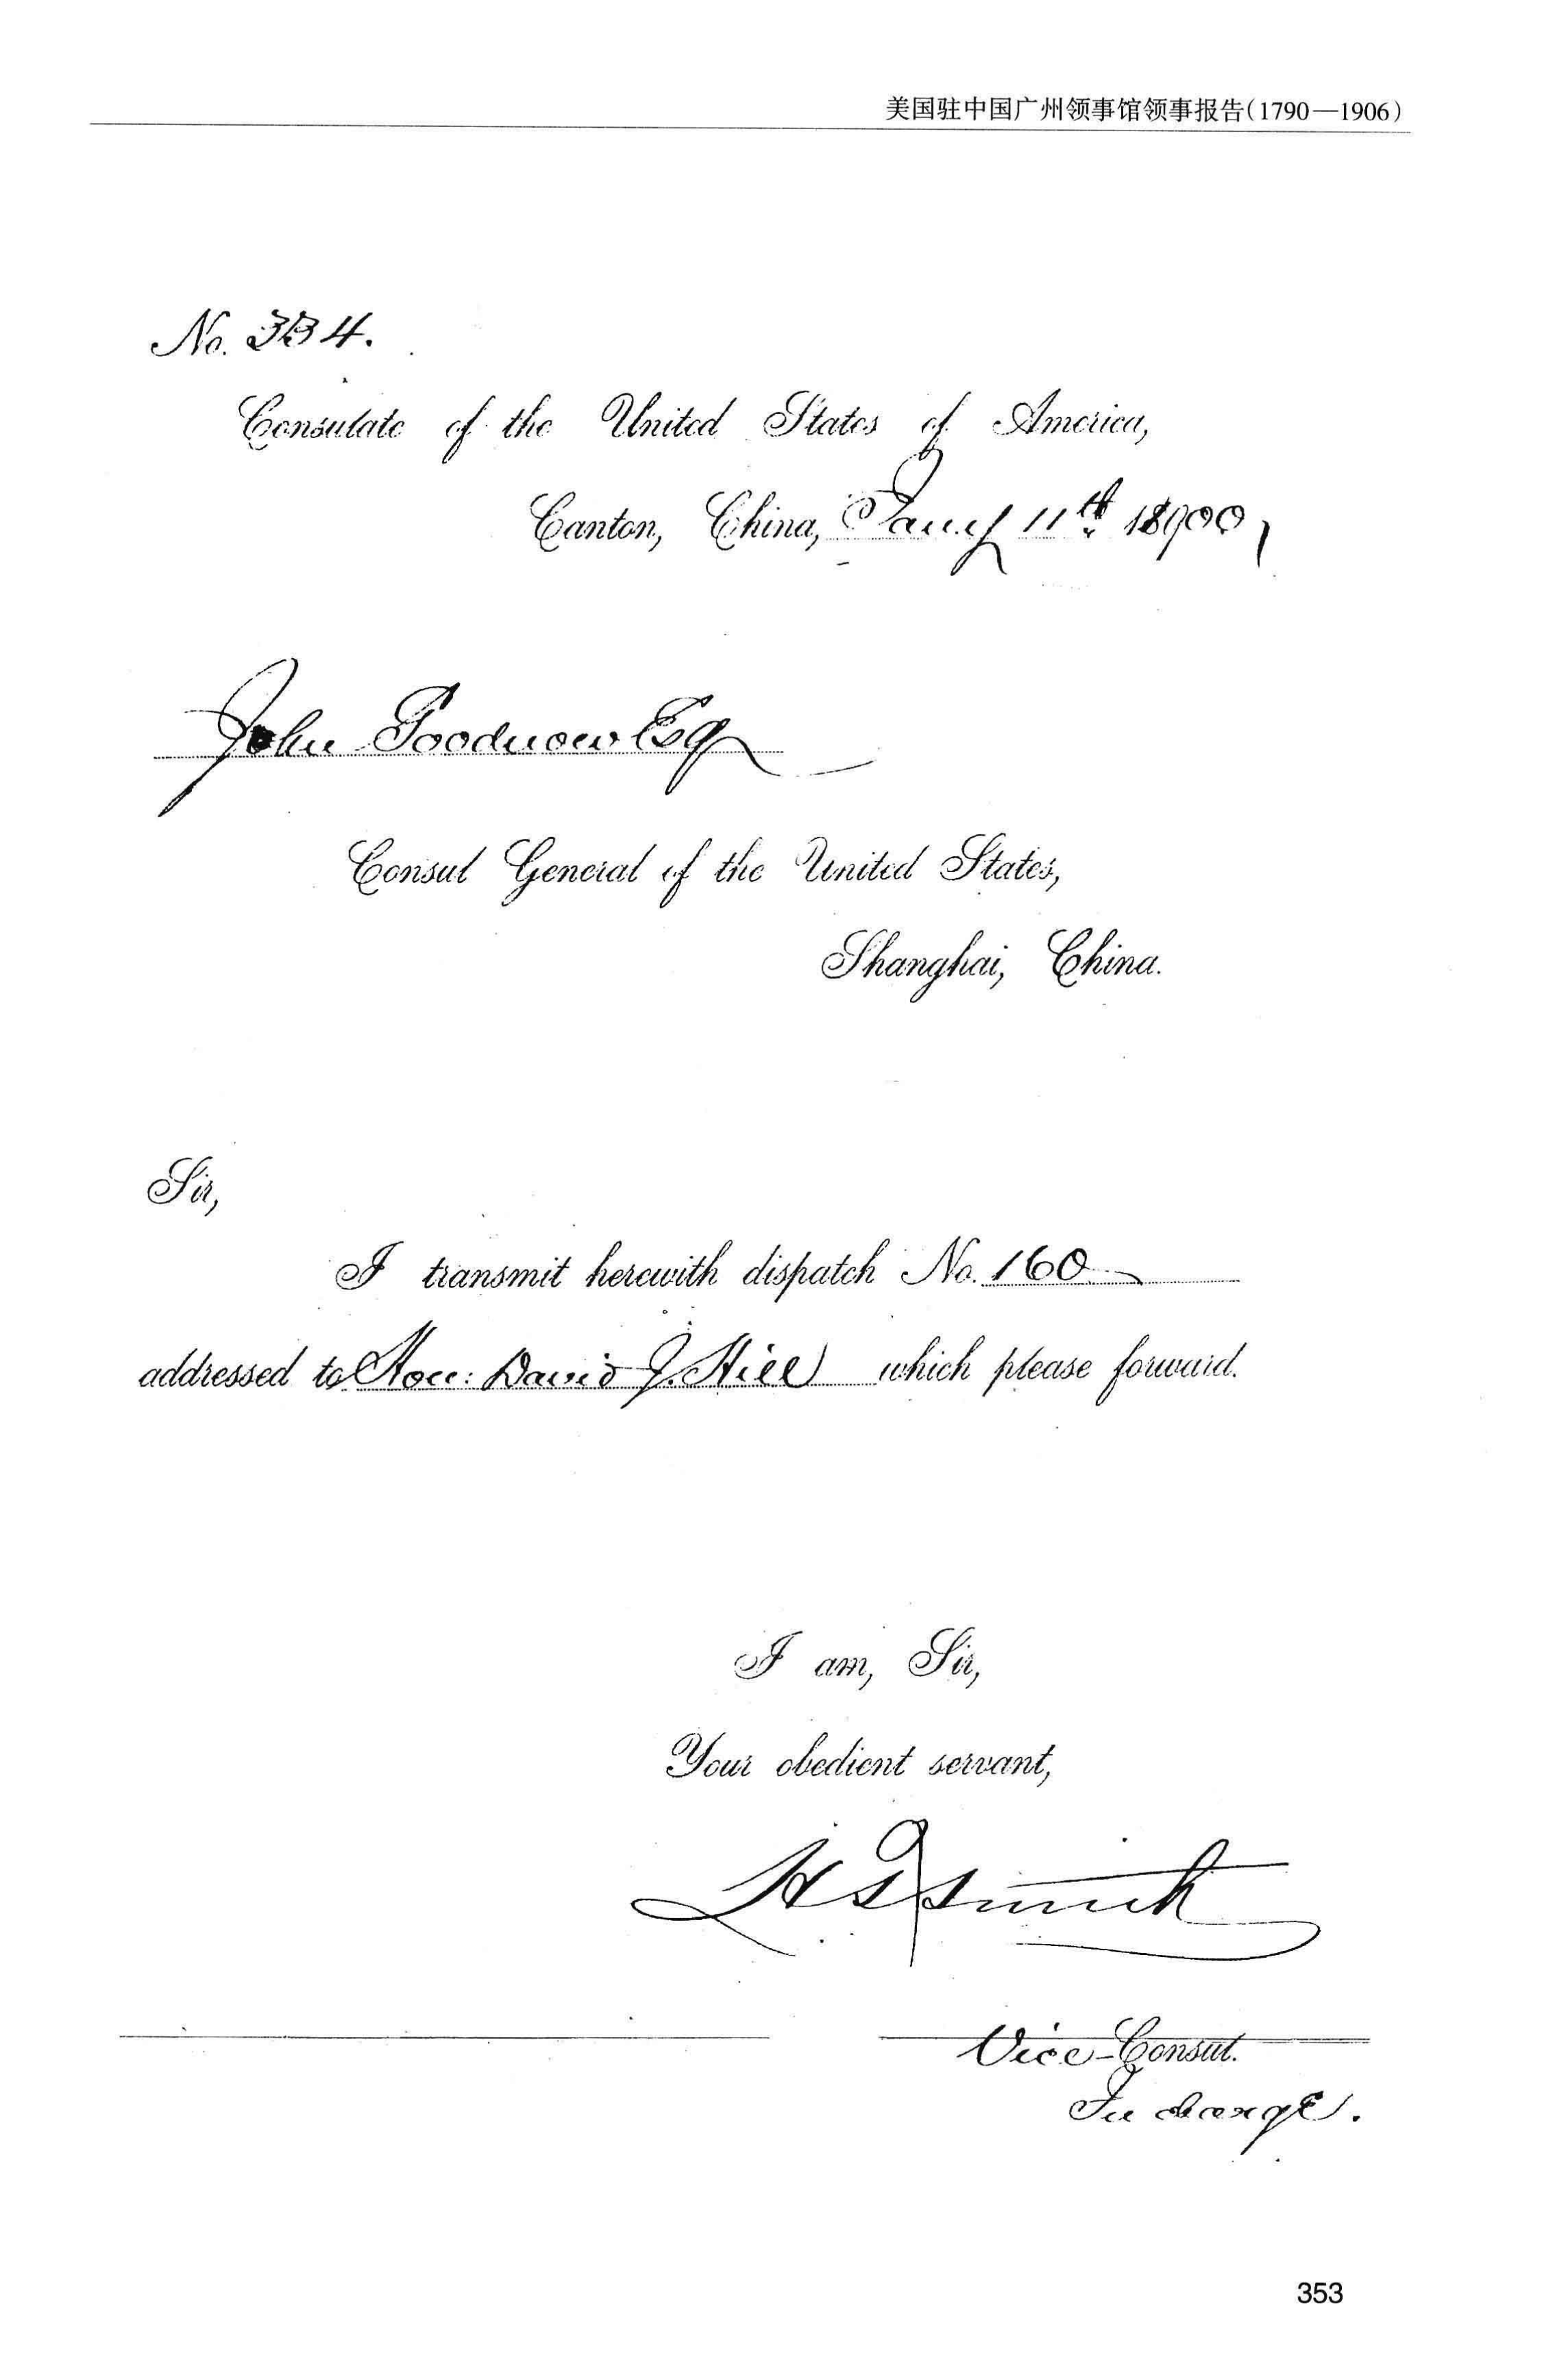 美国驻中国广州领事馆领事报告(1790—1906)
No. 334.
Consulate of the United States of America,
Canton, China, Jany 11th 1900,
John Goodnow Esq
Consul General of the United States,
Shanghai, China.
Sir,
I transmit herewith dispatch No. 160
addressed to Hon: David J. Hill which please forward.
I am, Sir,
Your obedient servant,
Smith
Vice-Consul.
In charge.
353